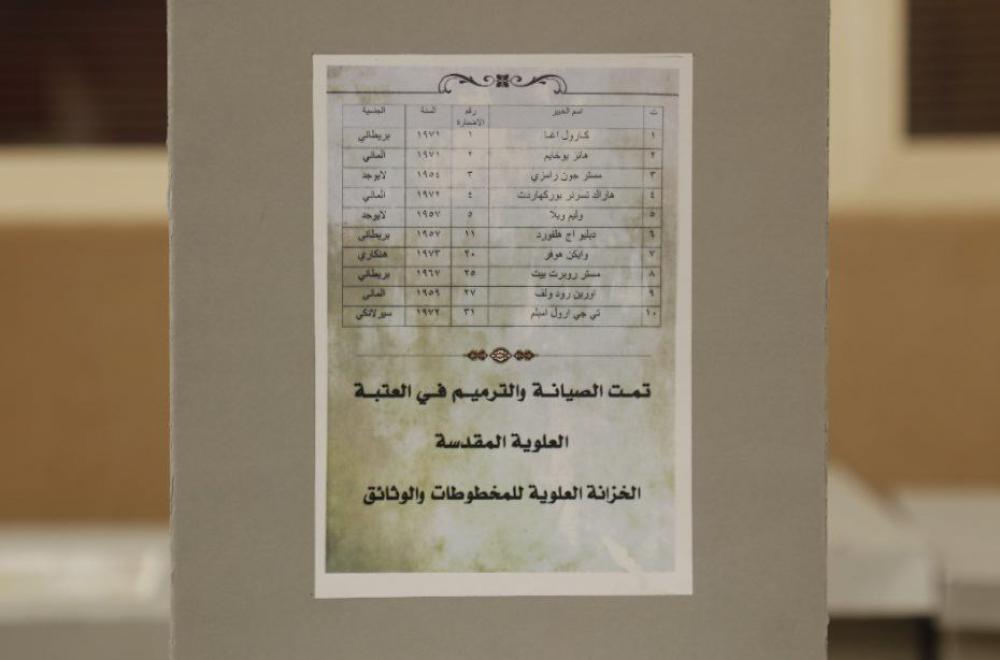 ت اسم الخبير رقم الاضبارة السنة الجنسية
١ كارول اغا ١ ١٩٧١ بريطاني
٢ هانز يوخايم ٢ ١٩٧١ الماني
٣ مستر جون رامزي ٣ ١٩٥٤ لايوجد
٤ هارالد تسرنر بوركهاردت ٤ ١٩٧٢ الماني
٥ وليم ويلا ٥ ١٩٥٧ لايوجد
٦ دبليو اج هلفورد ١١ ١٩٥٧ بريطاني
٧ وايكن هوفر ٢٠ ١٩٧٣ هنكاري
٨ مستر روبرت بيت ٢٥ ١٩٦٧ بريطاني
٩ اورين رود ولف ٢٧ ١٩٥٩ الماني
١٠ تي جي ارول امبلم ٣١ ١٩٧٢ سيرلانكي
تمت الصيانة والترميم في العتبة
العلوية المقدسة
الخزانة العلوية للمخطوطات والوثائق